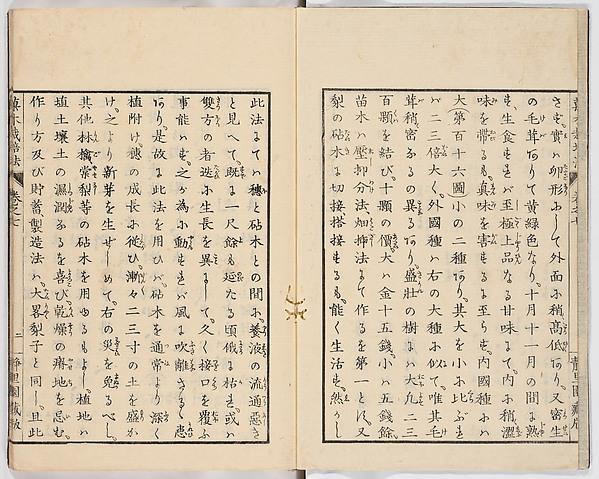 さも、實ハ卵形ふして外面ふ稍高低あり。又密生
の毛茸ありて黄緑色なり。十月十一月の間ょ熟
も、生食もれバ至極上品なる甘味まて、内ふ稍澀
味を帶るも、真味を害もるょ至らも。内國種ふハ
大(第百十六圖)小の二種あり。其大を小ふ比ぶ
ハ二三倍大く、外國種ハ右の大種ふ似て唯其毛
茸稍密ふるの異あり。盛壯の樹ょハ大凡二三
百顆を結び、十顆の價、大ハ金十五錢、小ハ五錢餘、
苗木ハ壓抑分法、畑揷法まて作るを第一とも。又
梨の砧木ょ切接搭接もるも、能く生活も。然れし
此法まてハ穗と砧木との間ふ養液の流通惡き
と見へて、既ょ一尺餘も延たる頃俄ょ枯も。或ハ
雙方の者迭ふ生長を異ょして、久く接口を覆ふ
事能ハも。之が為ふ動もれバ風ょ吹離さるゝ患
あり。是故ょ此法を用ひバ、砧木を通常より深く
植附け、穗の成長ふ從ひ漸々二三寸の土を盛か
け、之より新芽を生ぜしめて、右の災を免るべし。
其他林檎棠梨等の砧木を用ゆるもよし。植地ハ
埴土壤土の濕潤ふるを喜び、乾燥の瘠地を忌む。
作り方及び貯蓄製造法ハ、大畧梨子と同し。且此
卷之七
二
靜里園藏版